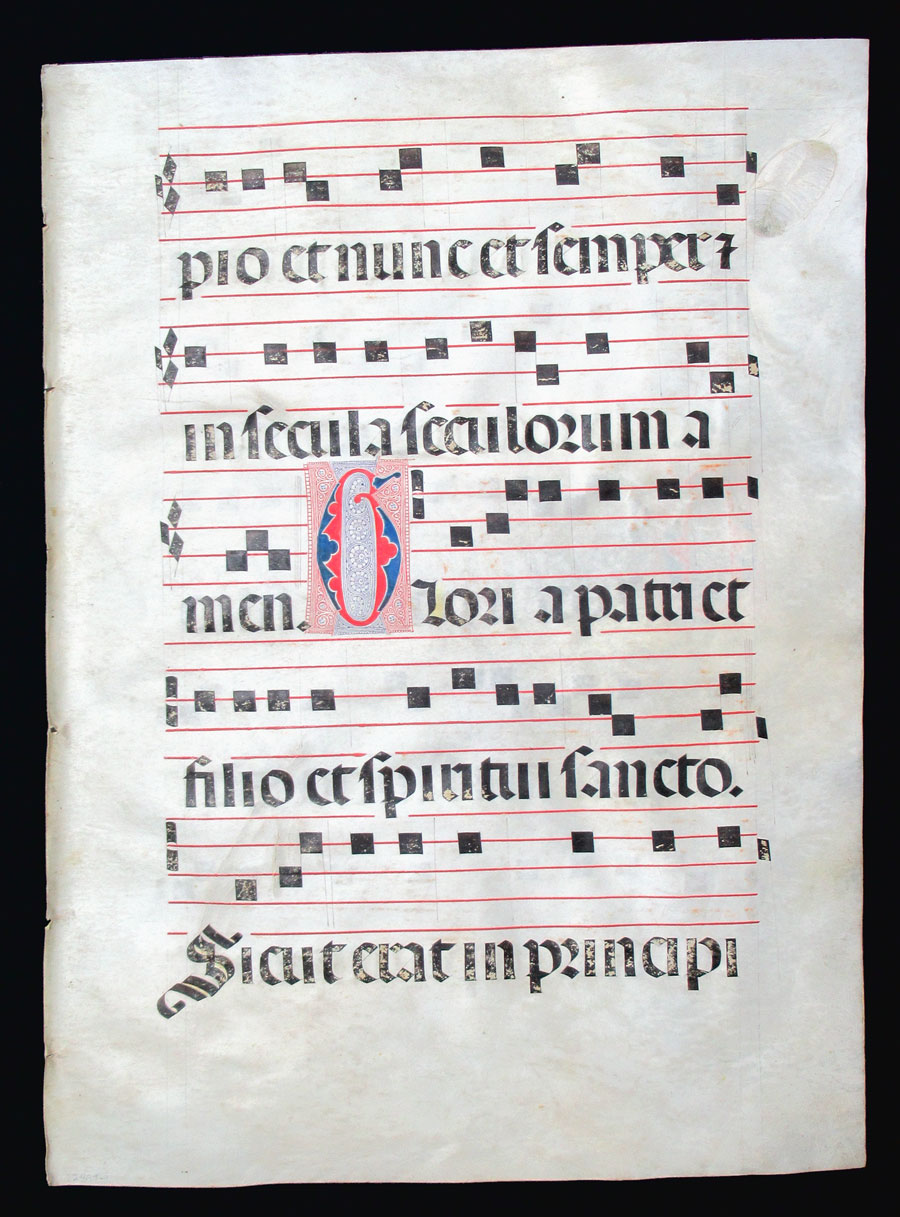 pio et nunc et semper ⁊
in secula seculorum a
men. Glori a patri et
filio et spiritui sancto.
Sicut erat in principi